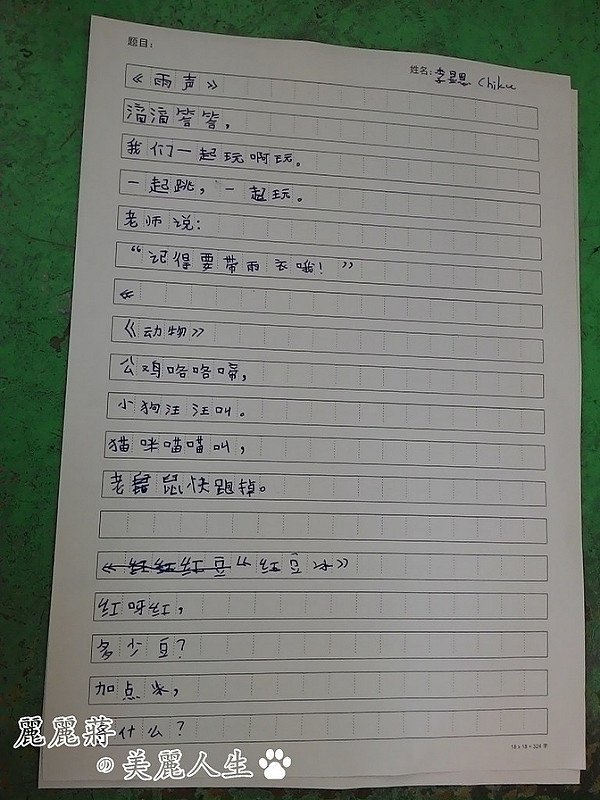 题目：
姓名：李显恩 Chiku
《雨声》
滴滴答答，
我们一起玩啊玩。
一起跳，一起玩。
老师说：
“记得要带雨衣哦！”
《
《动物》
公鸡咯咯啼，
小狗汪汪叫。
猫咪喵喵叫，
老鼠快跑掉。
《红豆冰》
红呀红，
多少豆？
加点冰，
什么？
18 x 18 = 324 字
麗麗蔣
の美麗人生